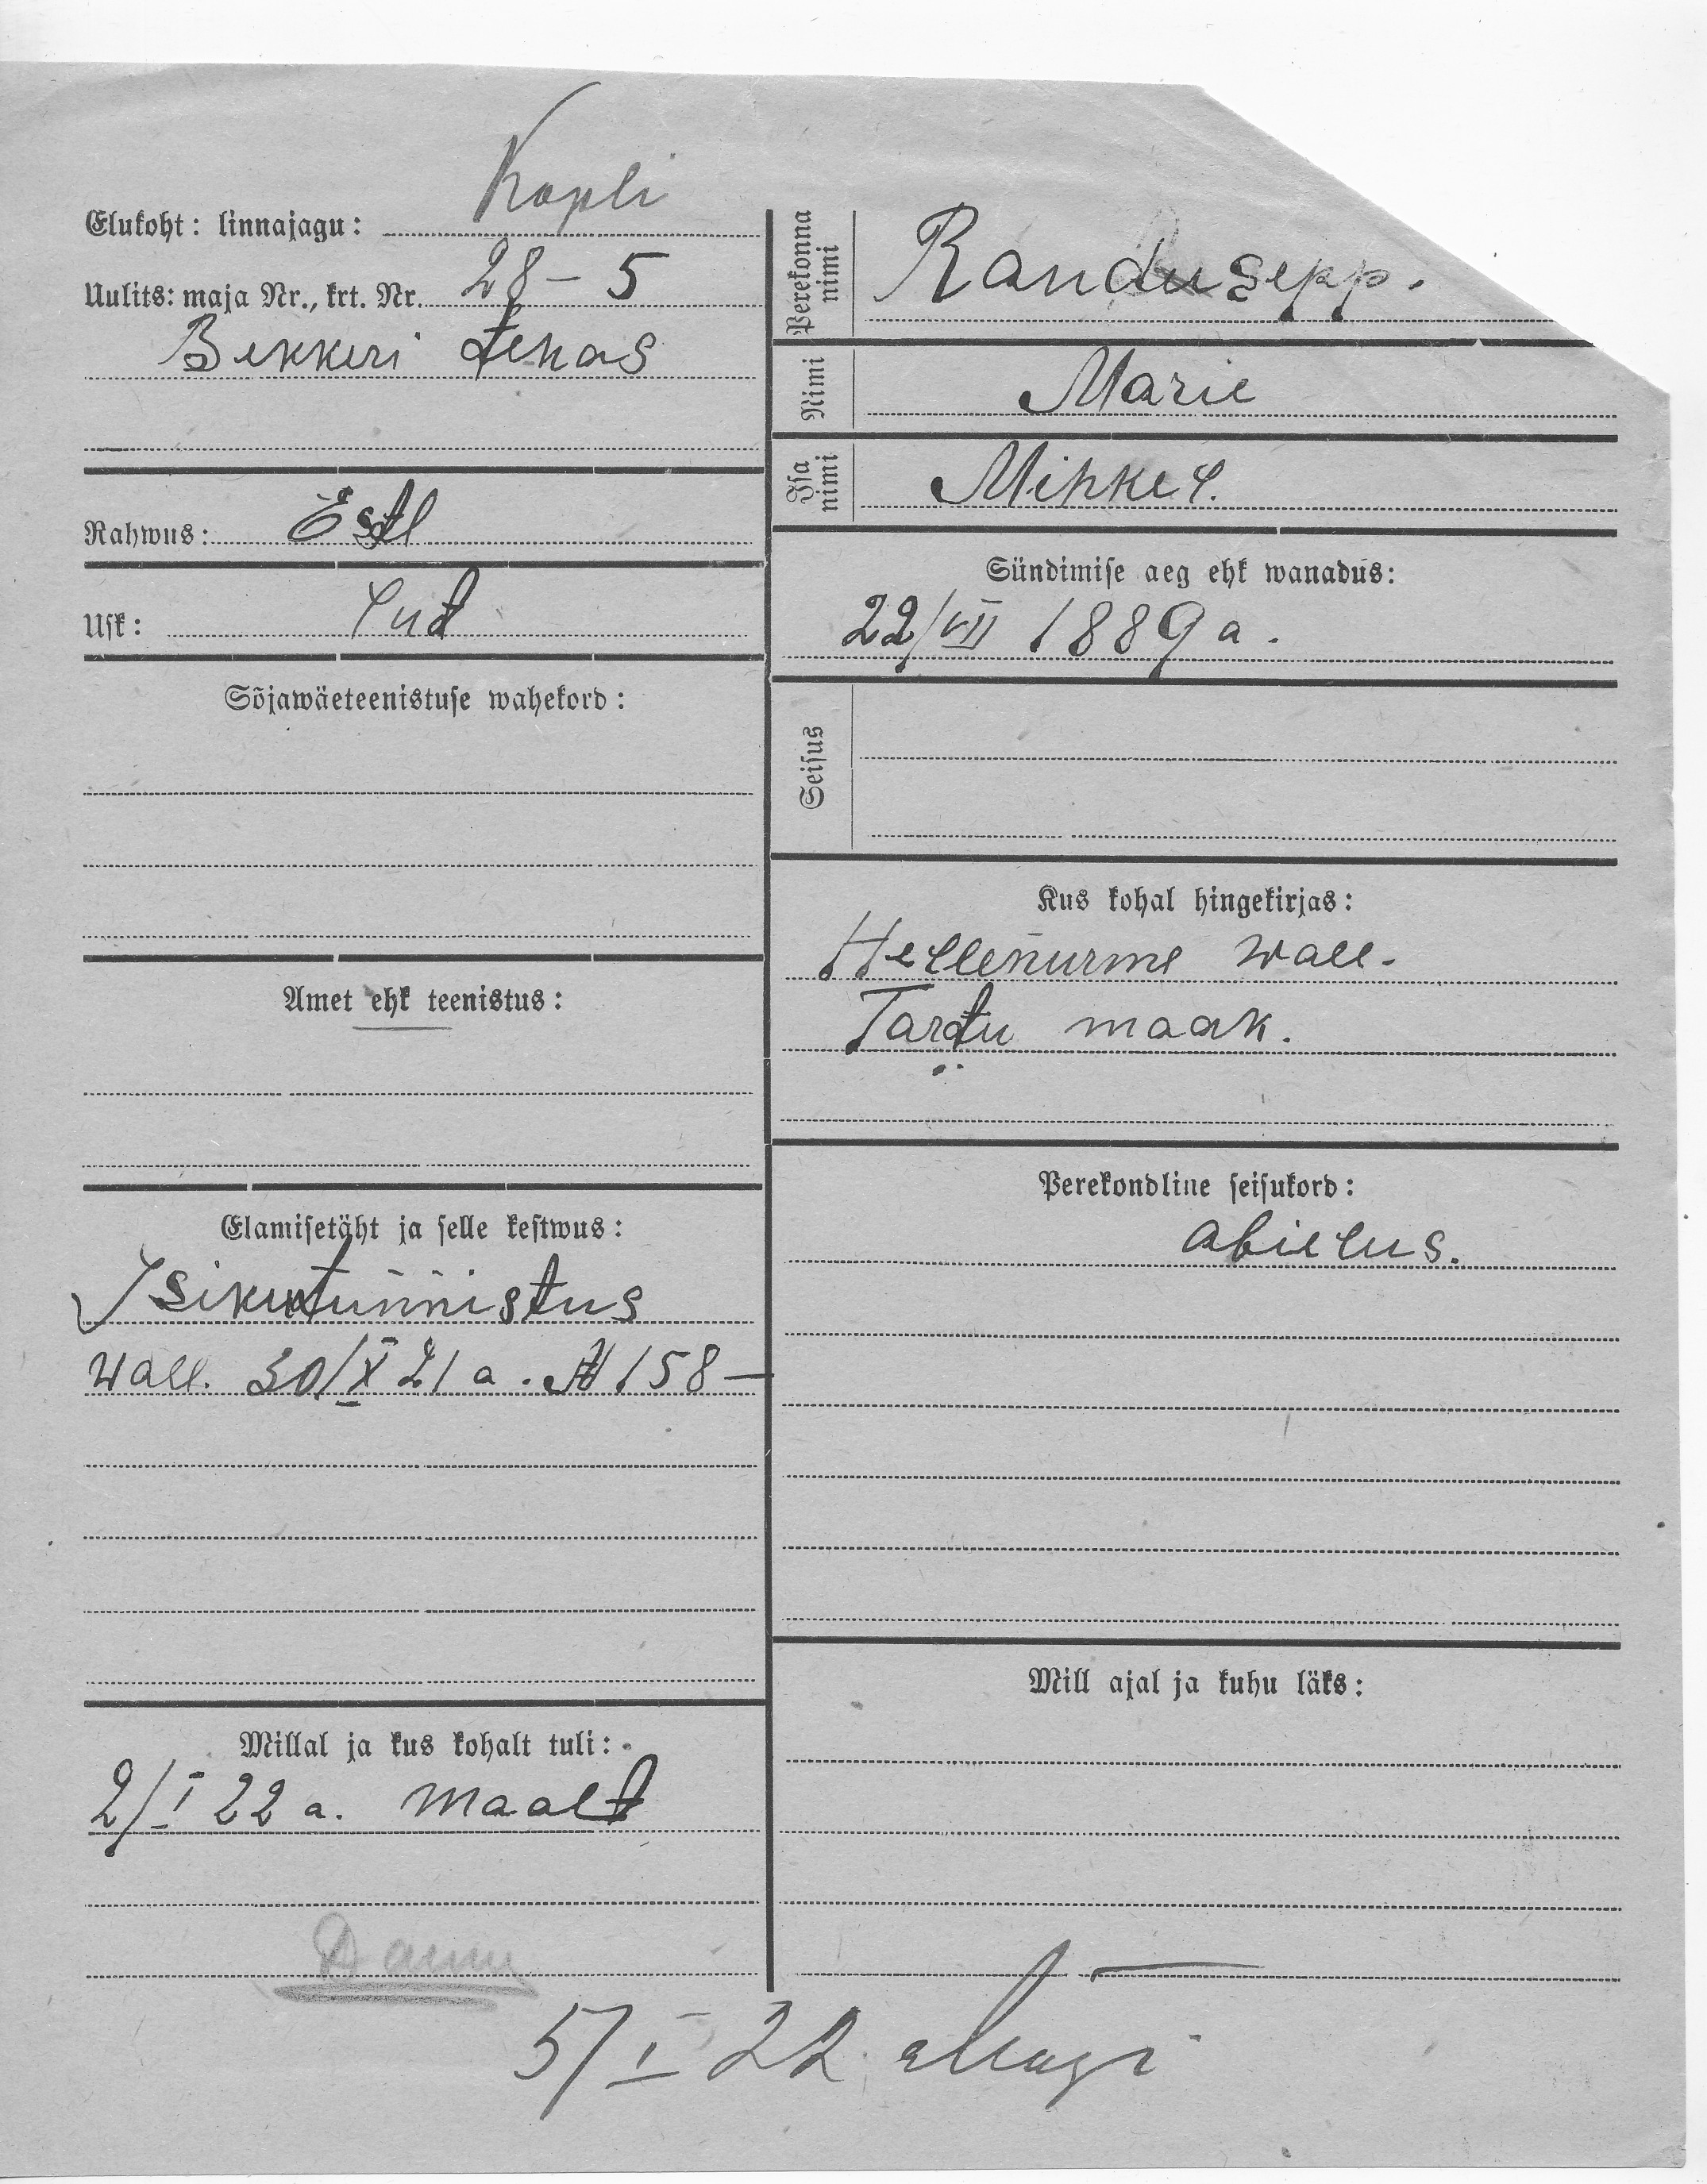 Elukoht: linnajagu: Kopli
Uulits: maja Nr., krt. Nr. 28 – 5
Bekkeri tehas
Rahwus: Estl
Usk: Lut
Sõjawäeteenistuse wahekord:
Amet ehk teenistus:
Elamisetäht ja selle kestwus:
Isikutunnistus
wall. 30/X 21 a. № 158 –
Millal ja kus kohalt tuli:
2/I 22 a. maalt
Perekonna nimi
Randusepp.
Nimi
Marie
Isa nimi
Mihkel.
Sündimise aeg ehk wanadus:
22/VII 1889 a.
Seisus
Kus kohal hingekirjas:
Hellenurme wall.
Tartu maak.
Perekondline seisukord:
abielus.
Mill ajal ja kuhu läks:
5/I 22.